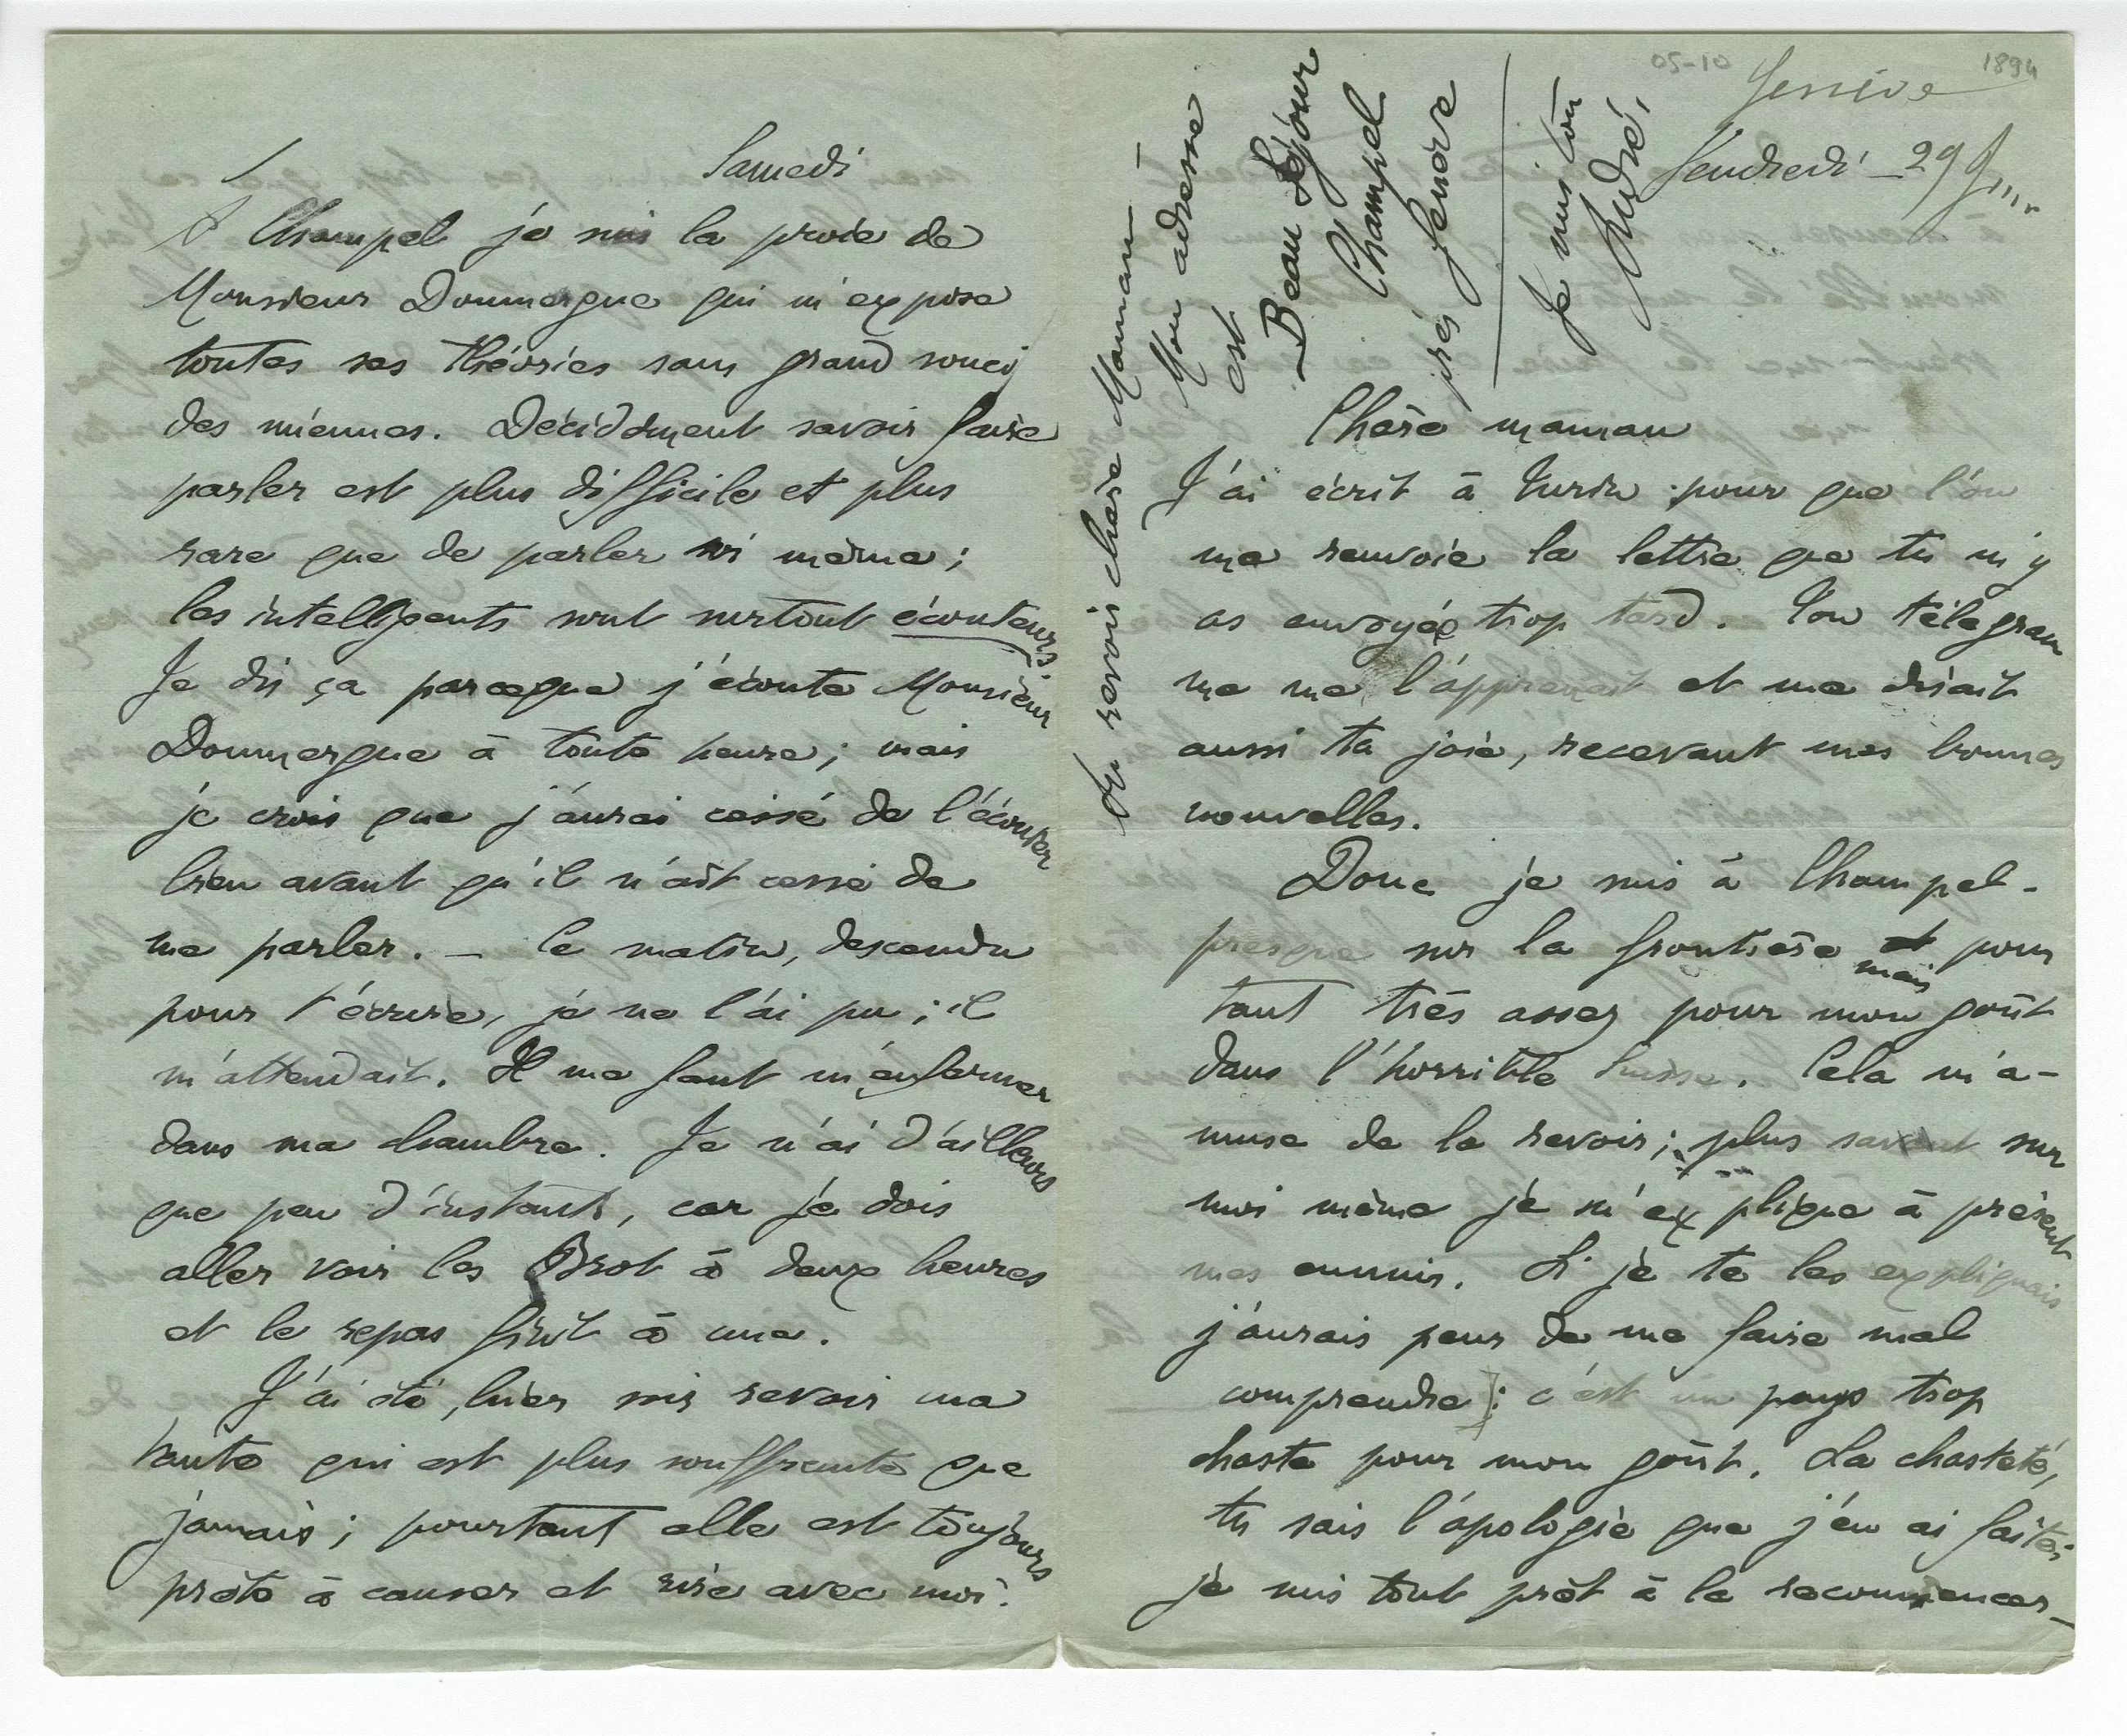 05-10
1894
Genève
Vendredi - 29 Juin
Chère maman
J'ai écrit à Turin pour que l'on
me renvoie la lettre que tu m'y
as envoyée trop tard. Ton télégram
me me l'apprenait et me disait
aussi ta joie, recevant mes bonnes
nouvelles.
Donc je suis à Champel -
presque sur la frontière et mais pour
tant très assez pour mon goût
dans l'horrible Suisse. Cela m'a-
muse de la revoir ; plus savant sur
moi même je m'explique à présent
mes ennuis. Si je te les expliquais
j'aurais peur de me faire mal
comprendre ; c'est un pays trop
chaste pour mon goût. La chasteté,
tu sais l'apologie que j'en ai faite ;
je suis tout prêt à la recommencer -
Au revoir chère Maman -
Mon adresse
est
Beau Séjour
Champel
près Genève
Je suis ton
André,
Samedi
A Champel je suis la proie de
Monsieur Doumergue qui m'expose
toutes ses théories sans grand souci
des miennes. Décidément savoir faire
parler est plus difficile et plus
rare que de parler soi même ;
les intelligents sont surtout écouteurs
Je dis ça parceque j'écoute Monsieur
Doumergue à toute heure ; mais
je crois que j'aurai cessé de l'écouter
bien avant qu'il n'ait cessé de
me parler. - Ce matin, descendu
pour t'écrire, je ne l'ai pu ; il
m'attendait. Il me faut m'enfermer
dans ma chambre. Je n'ai d'ailleurs
que peu d'instants, car je dois
aller voir les Brot à deux heures
et le repas finit à une.
J'ai été, hier soir revoir ma
tante qui est plus souffrante que
jamais ; pourtant elle est toujours
prête à causer et rire avec moi.